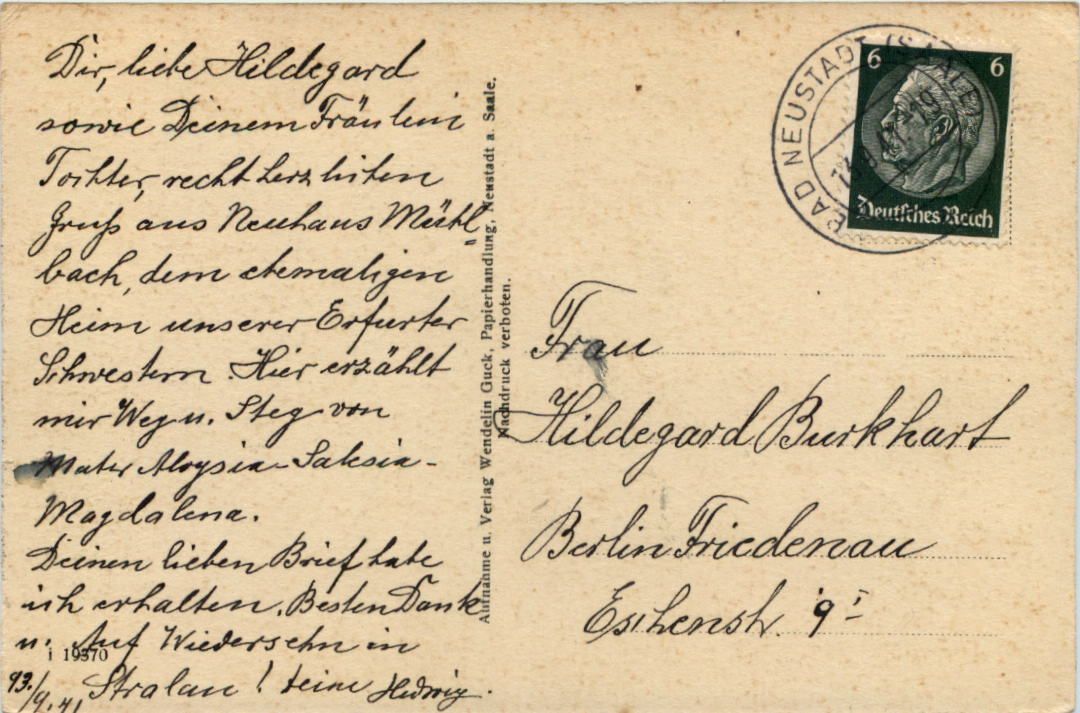 Dir, liebe Hildegard
sowie Deinem Fräulein
Tochter, recht herzlichen
Gruß aus Neuhaus Mühl
bach, dem ehemaligen
Heim unserer Erfurter
Schwestern. Hier erzählt
mir Weg u. Steg von
Mater Aloysia - Salesia -
Magdalena.
Deinen lieben Brief habe
ich erhalten. Besten Dank
u. Auf Wiedersehn in
Stralau! Deine Hedwig.
13./9.41
i 19370
Aufnahme u. Verlag Wendelin Guck, Papierhandlung, Neustadt a. Saale.
Nachdruck verboten.
BAD NEUSTADT (SAALE)
6 6
Deutsches Reich
Frau
Hildegard Burkhart
Berlin Friedenau
Eschenstr. 9 I